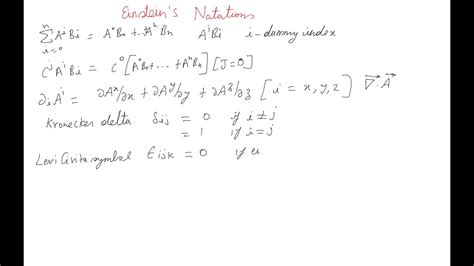 Einstein's Notations
n∑i=0 AⁱBi = A⁰B₀ + ..AⁿBn AⁱBi i-dummy index
CʲAⁱBi = C⁰[A⁰B₀+ ... + AⁿBn] [J=0]
∂iAⁱ = ∂Aˣ/∂x + ∂Aʸ/∂y + ∂Aᶻ/∂z [i = x, y, z] ∇⃗·A⃗
Kronecker delta δij = 0 if i≠j
= 1 if i=j
Levi Civita symbol ϵijk = 0 if